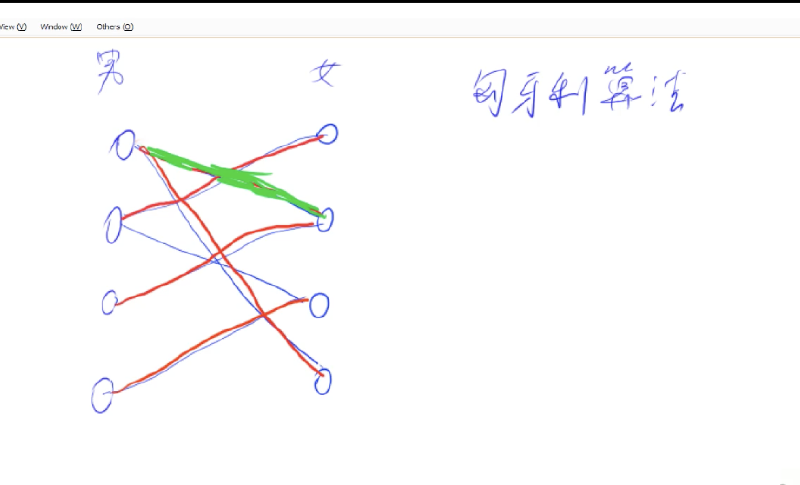 View (V) Window (W) Others (O)
男 女
匈牙利算法